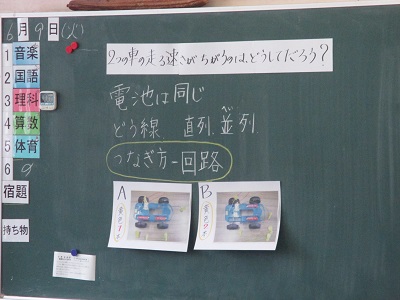 6月9日(火)
1 音楽
2 国語
3 理科
4 算数
5 体育
6
宿題
持ち物
2つの車の走る速さがちがうのは、どうしてだろう?
電池は同じ
どう線 直列、並列
つなぎ方一回路
A
B